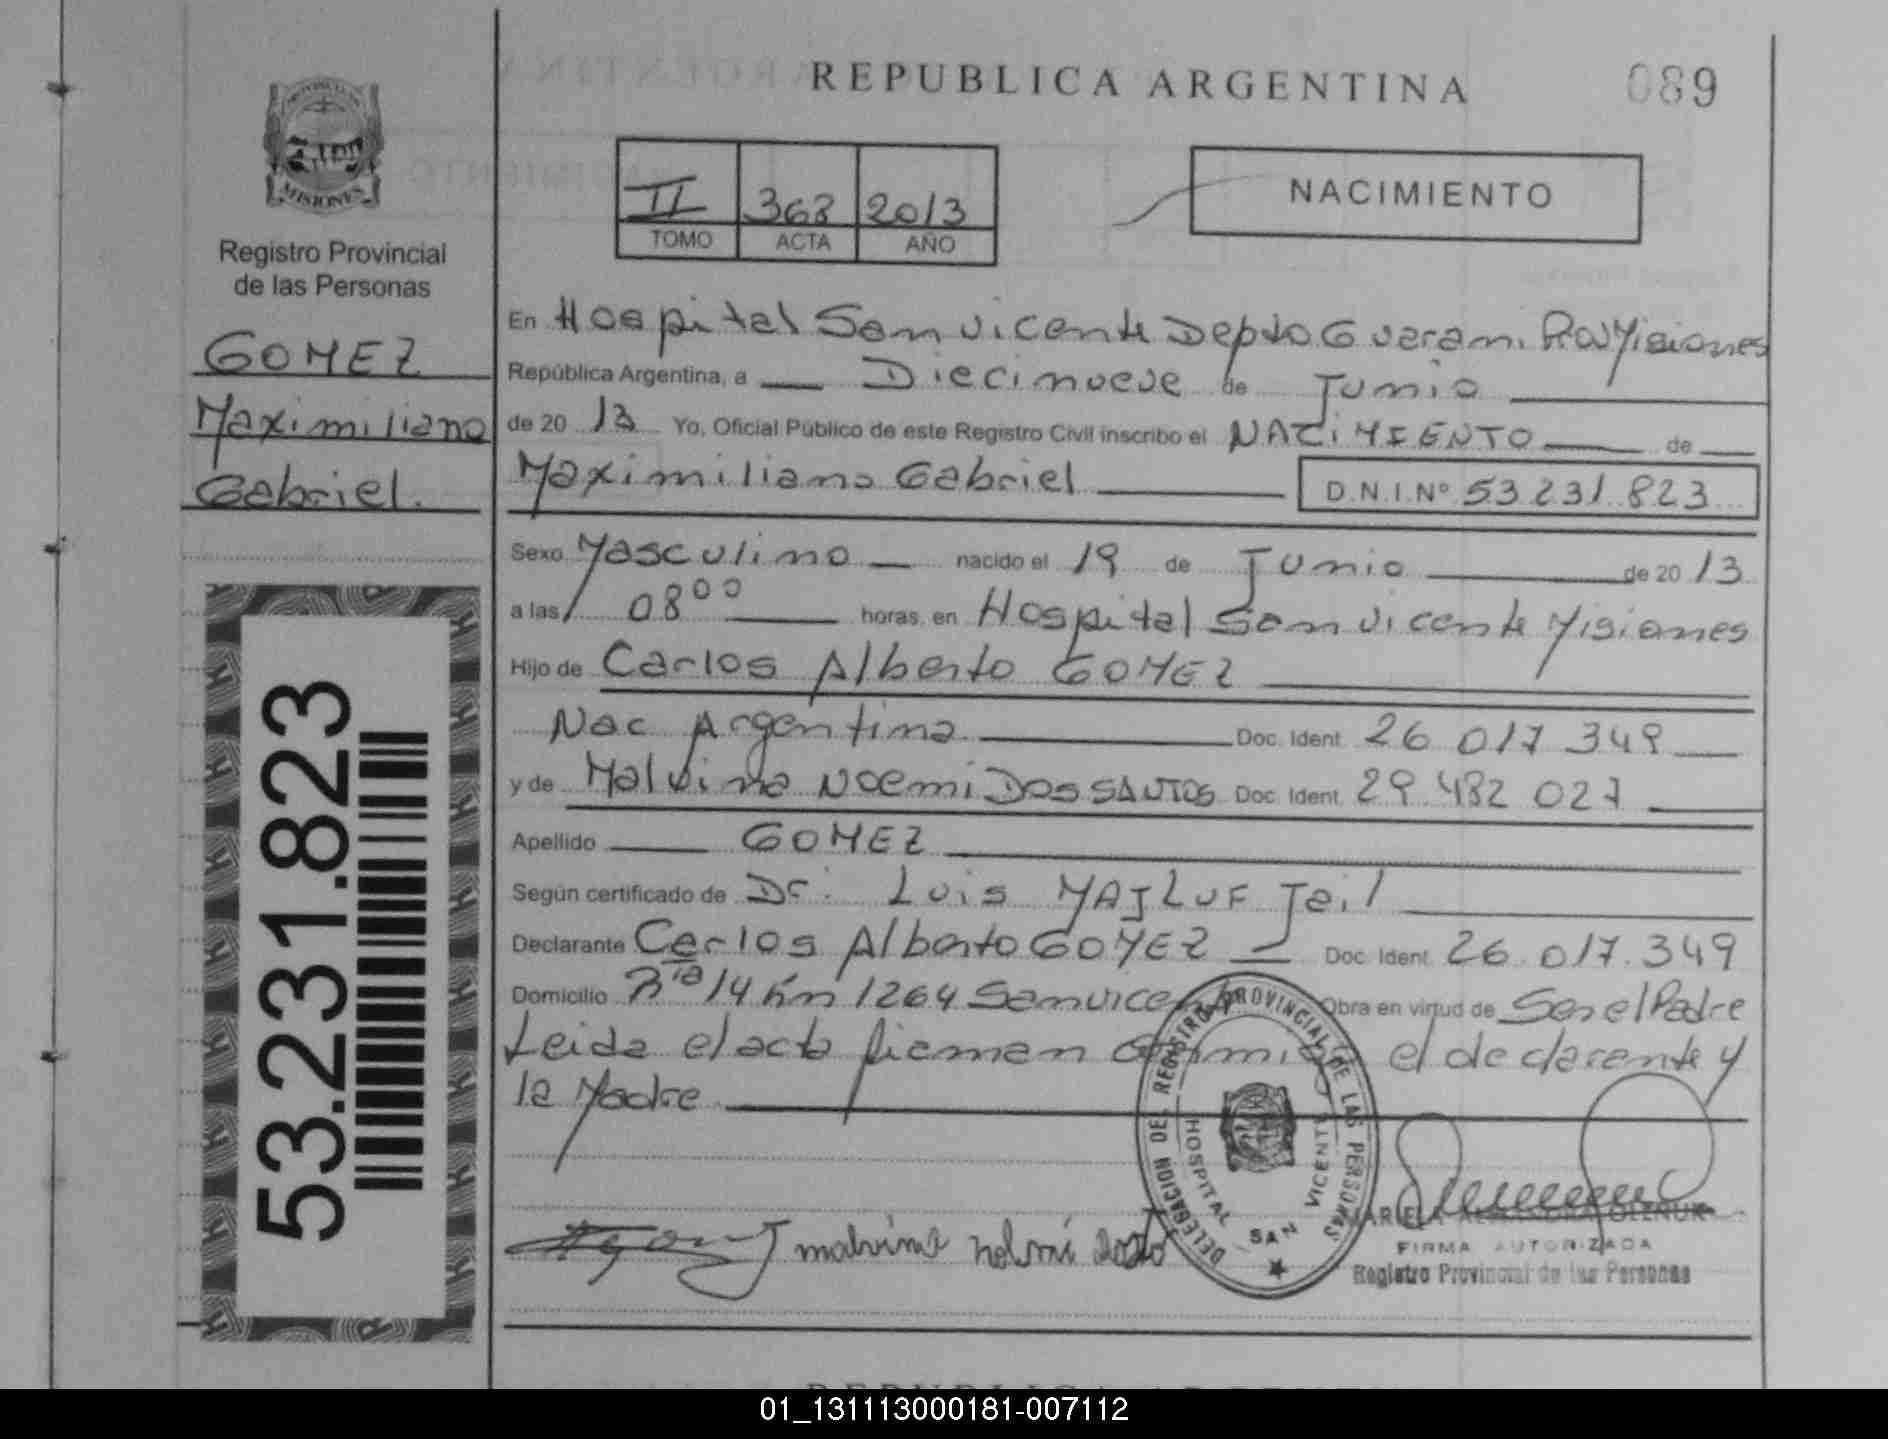 REPUBLICA ARGENTINA
089
PROVINCIA DE
MISIONES
Registro Provincial
de las Personas
GOMEZ
Maximiliano
Gabriel.
53.231.823
II 368 2013
TOMO ACTA AÑO
NACIMIENTO
En Hospital San Vicente Depto Guarani Misiones
República Argentina, a Diecinueve de Junio
de 20 13 Yo, Oficial Público de este Registro Civil inscribo el NACIMIENTO de
Maximiliano Gabriel D.N.I.Nº 53 231 823
Sexo Masculino nacido el 19 de Junio de 20 13
a las 08 00 horas, en Hospital San Vicente Misiones
Hijo de Carlos Alberto GOMEZ
Nac Argentina Doc. Ident. 26 017 349
y de Malvina Noemi DOS SANTOS Doc. Ident. 29 482 027
Apellido GOMEZ
Según certificado de Dr: Luis MAJLUF
Declarante Carlos Alberto GOMEZ Doc. Ident. 26.017.349
Domicilio 14 km 1264 San Vicente Obra en virtud de Ser el Padre
Leida el acta firman conmigo el declarante y
la Madre
DELEGACION DEL REGISTRO PROVINCIAL DE LAS PERSONAS
HOSPITAL SAN VICENTE
malvina
FIRMA AUTORIZADA
Registro Provincial de las Personas
01_131113000181-007112